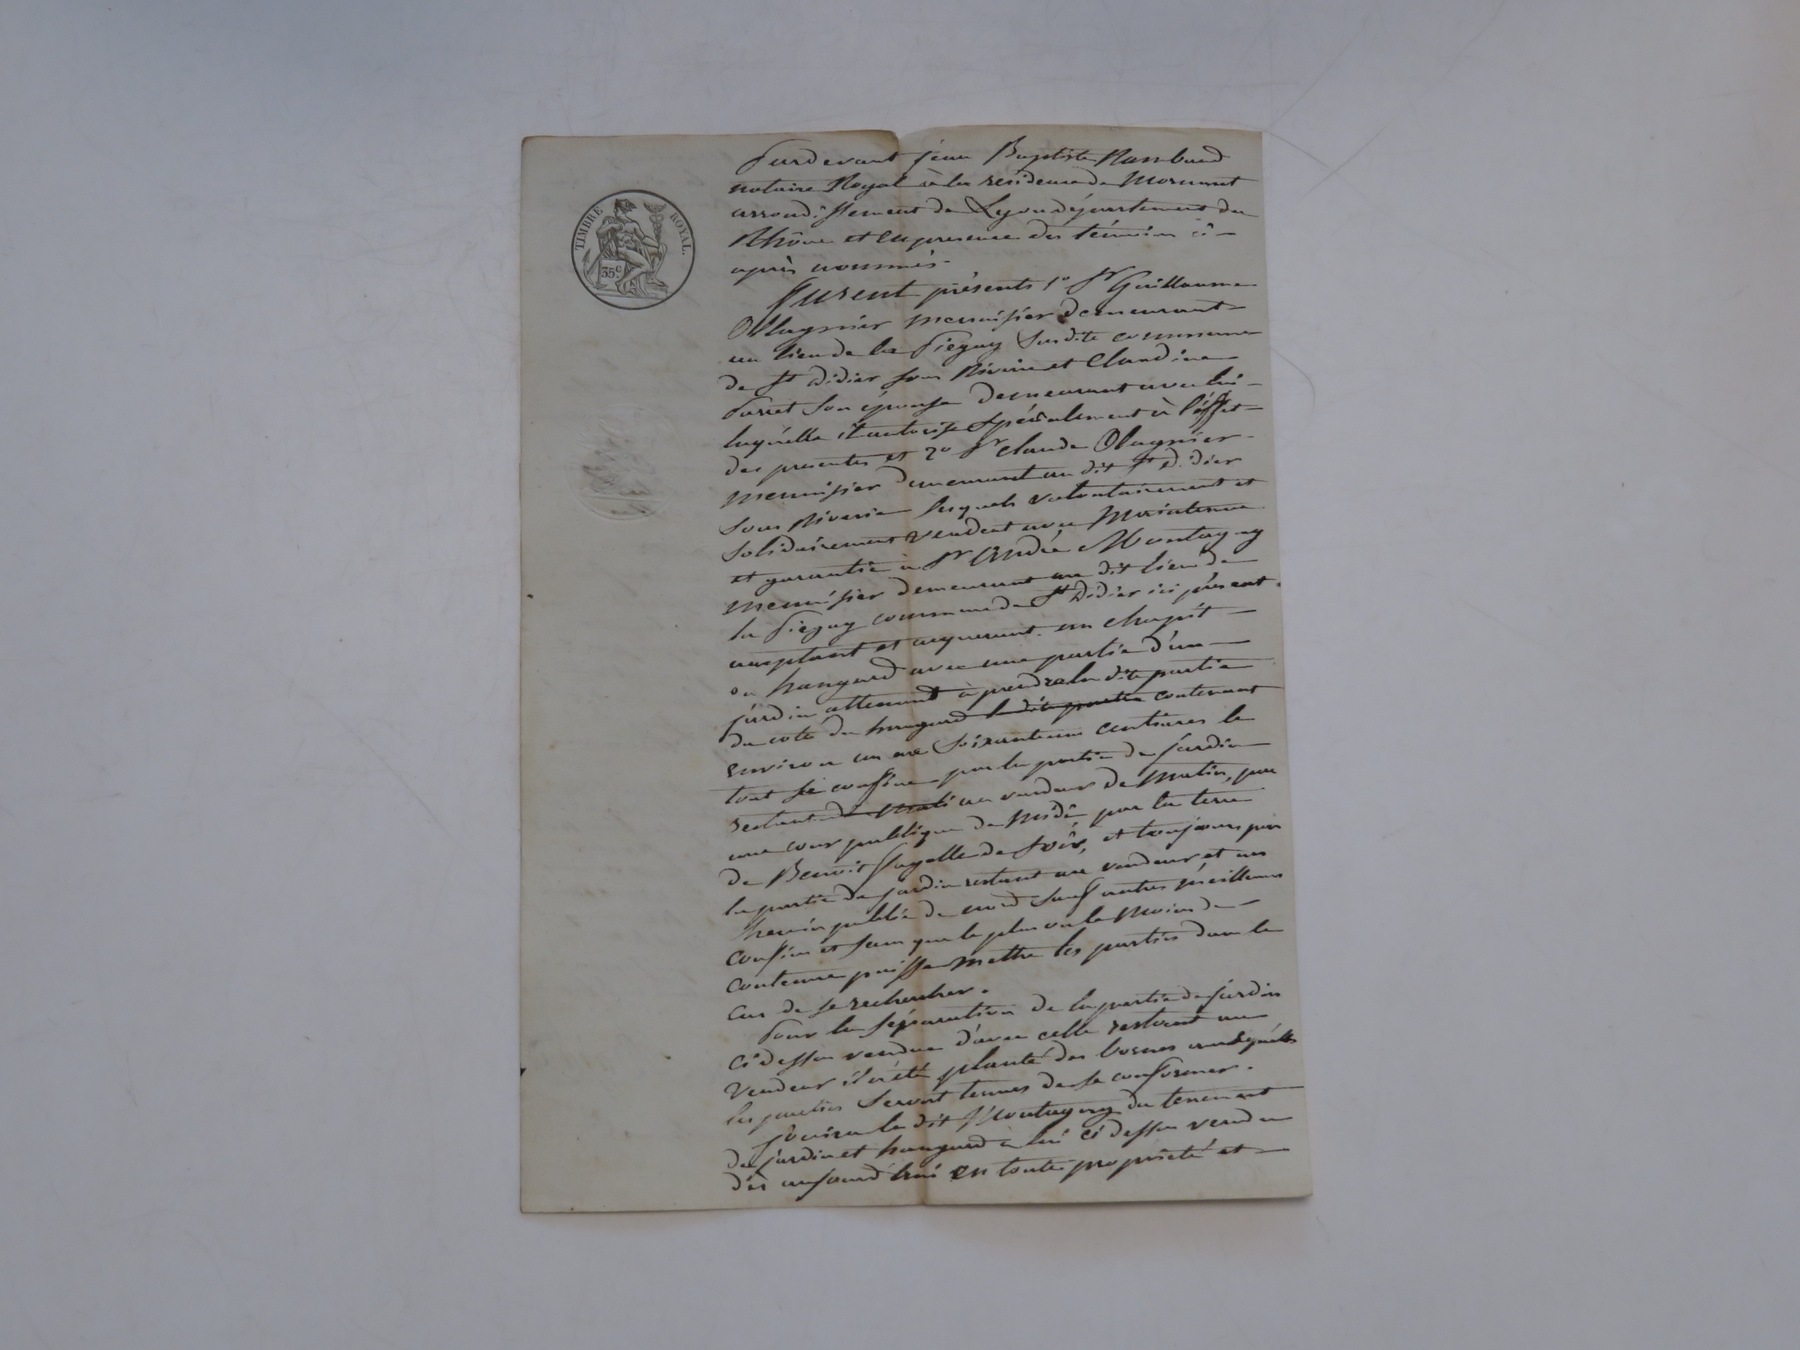 TIMBRE ROYAL.
35.c
Pardevant Jean Baptiste Rambaud
notaire Royal à la résidence de Mornant
arrondissement de Lyon département du
Rhône et en presence des témoins ci-
après nommés.
Furent présents 1° Sr Guillaume
Ollagnier menuisier demeurant
au lieu de la susdite commune
de St Didier sous Riverie et Claudine
son épouse demeurant avec lui
laquelle il autorise spécialement à l'effet
des presentes et 2° Sr Claude Ollagnier
menuisier demeurant au dit St Didier
sous Riverie lesquels volontairement et
solidairement vendent avec Maintenue
et garantie à Sr André Montagny
menuisier demeurant au dit lieu de
la commune de St Didier ici présent
acceptant et acquerant un chapit
ou hangard avec une partie d'un
jardin attenant à prendre la dite partie
du coté du hangard la dite partie contenant
environ un are soixante un centiares le
tout se confine par la partie de jardin
restant au vendeur de matin, par
une cour publique de midi, par la terre
de Benoit Fayolle de soir, et toujours par
la partie de jardin restant au vendeur et un
chemin public de nord sauf autres meilleurs
confins et sans que le plus ou le moins de
contenue puisse mettre les parties dans le
cas de se rechercher.
Pour la séparation de la partie de jardin
ci dessus vendue d'avec celle restant au
vendeur il a été planté des bornes auxquelles
les parties seront tenues de se conformer.
Jouira le dit Montagny du tenement
de jardin et hangard à lui ci dessus vendu
dès aujourd'hui en toute propriété et